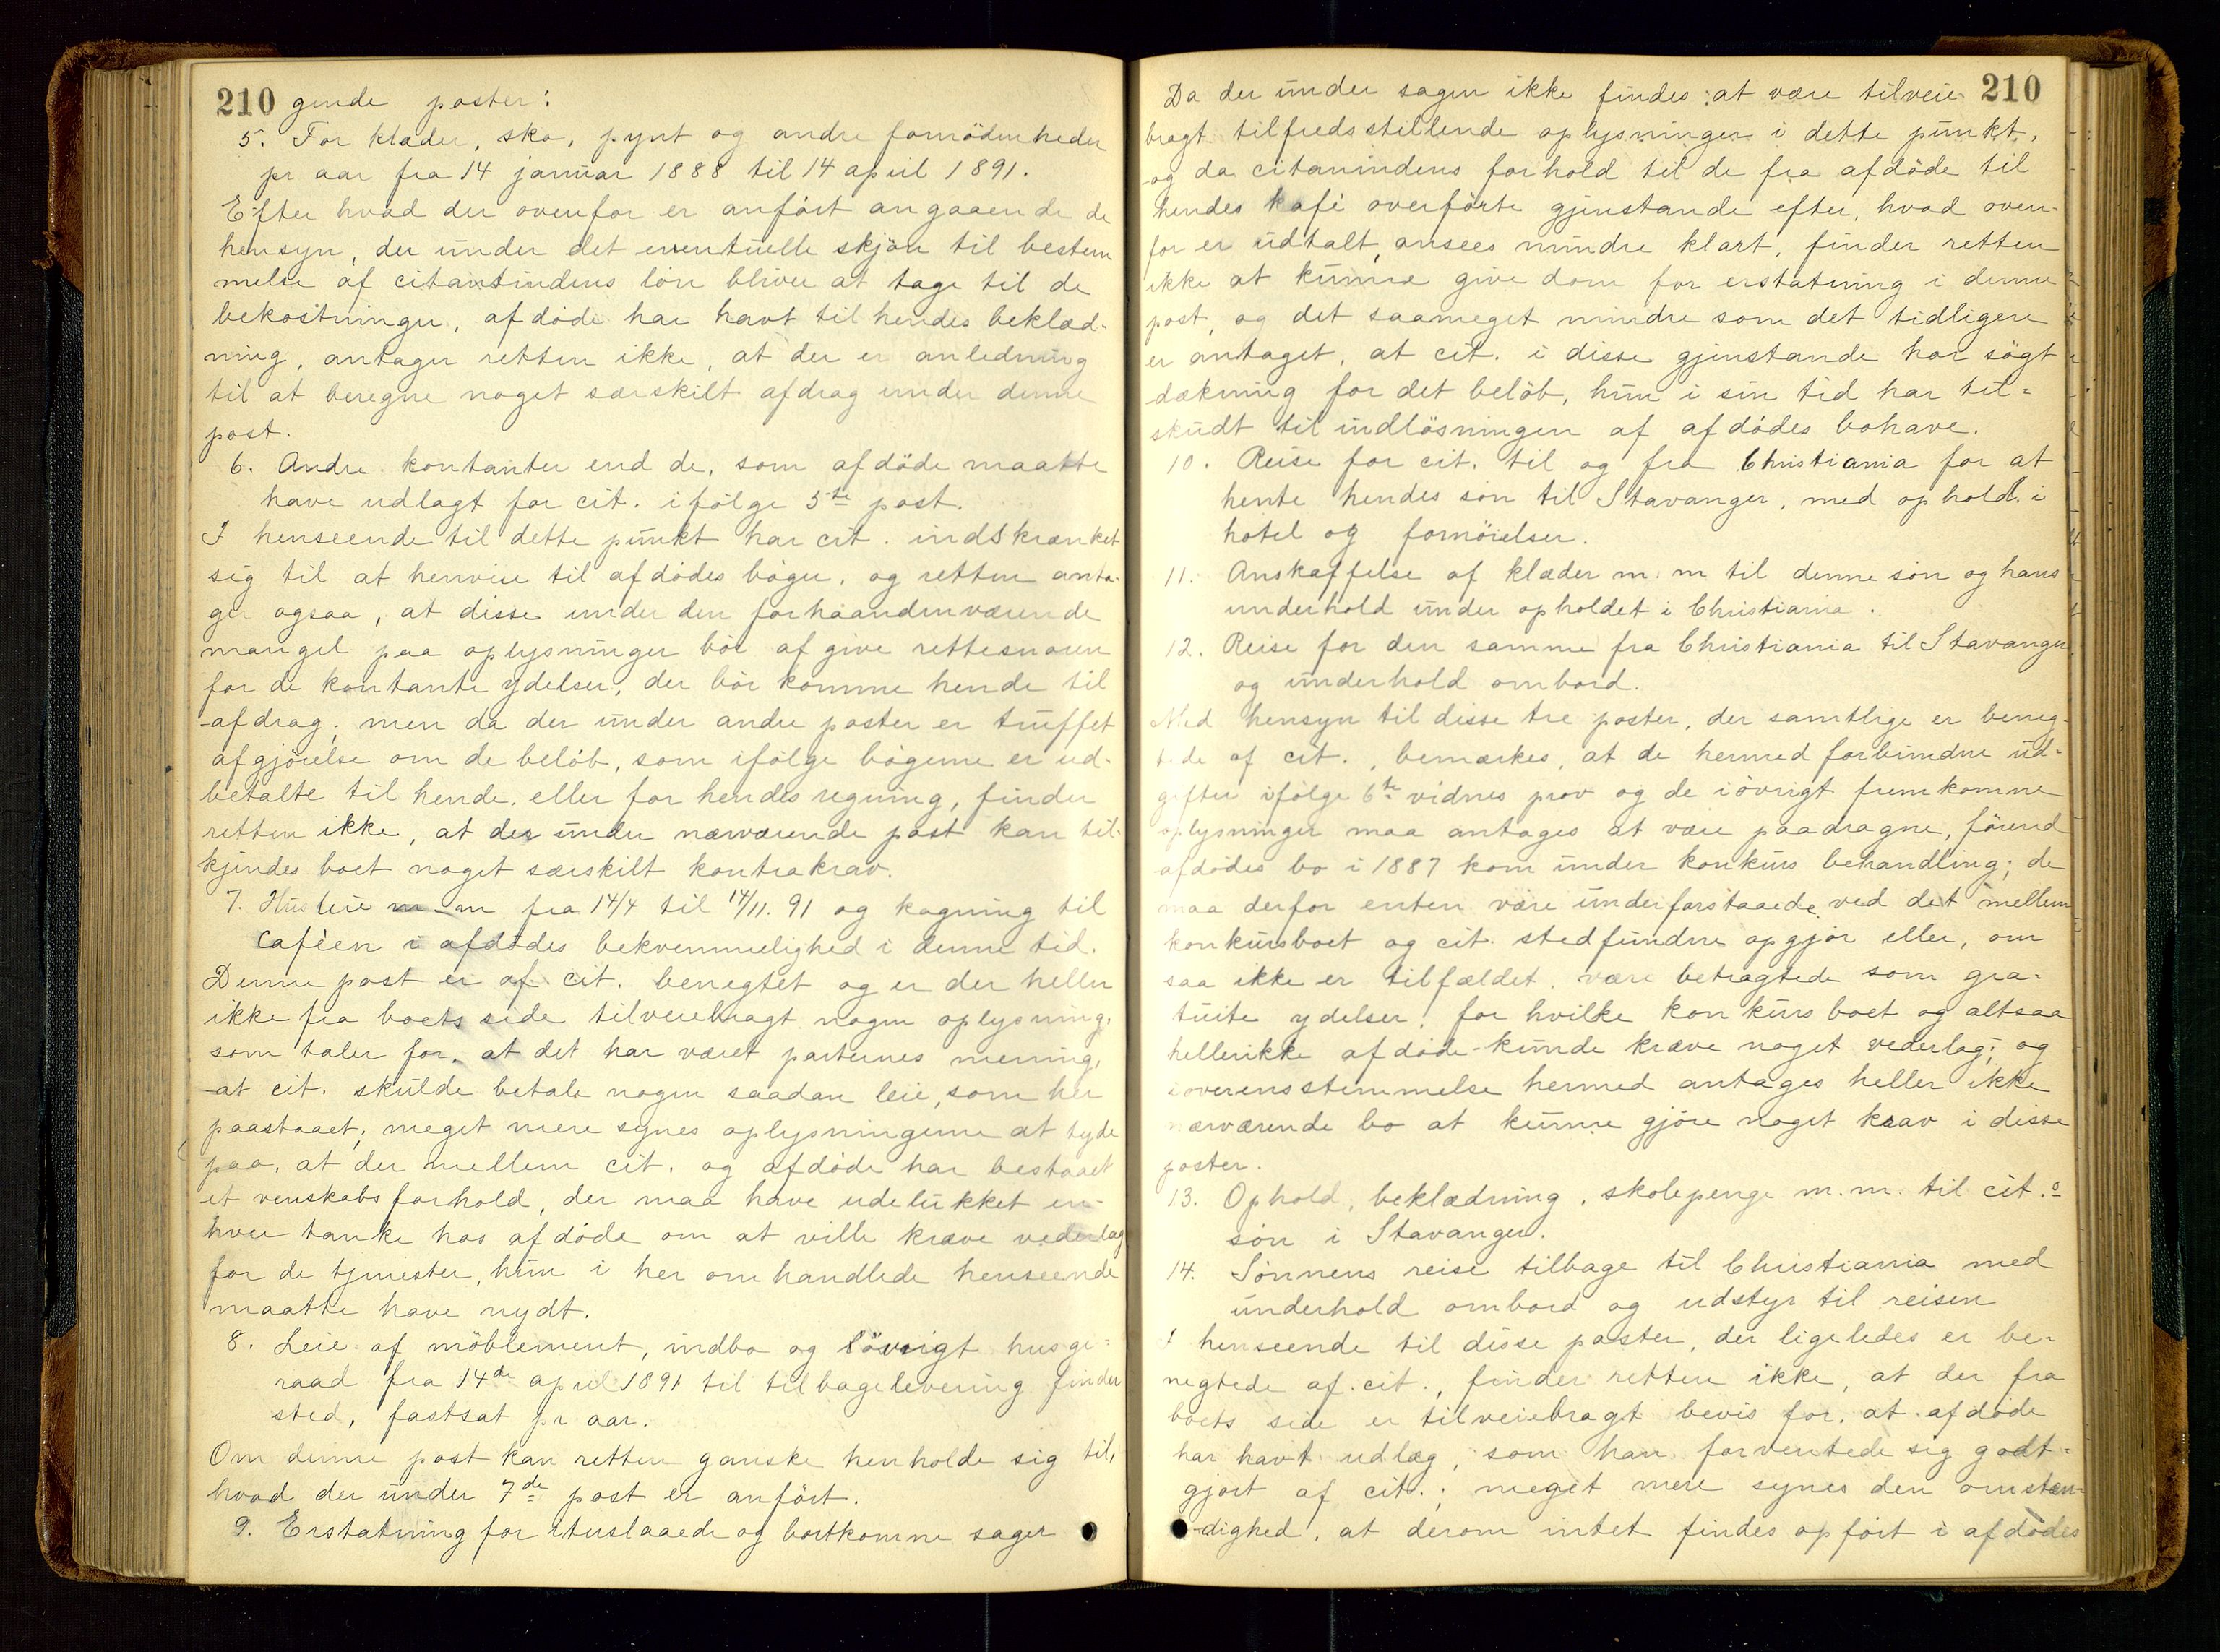 210 gende poster:
5. For klæder, sko, pynt og andre fornödenheder
pr aar fra 14 januar 1888 til 14 april 1891.
Efter hvad der ovenfor er anfört angaaende de
hensyn, der under det eventuelle skjön til bestem
melse af citantindens lön bliver at tage til de
bekostninger, afdöde har havt til hendes beklæd-
ning, antager retten ikke, at der er anledning
til at beregne noget særskilt afdrag under denne
post.
6. Andre kontanter end de, som afdöde maatte
have udlagt for cit. ifölge 5te post.
I henseende til dette punkt har cit. indskrænket
sig til at henvise til afdödes böger, og retten anta-
ger ogsaa, at disse under den forhaandenværende
mangel paa oplysninger bör afgive rettesnoren
for de kontante ydelser, der bör komme hende til
afdrag; men da der under andre poster er truffet
afgjörelse om de belöb, som ifölge bögerne er ud-
betalte til hende, eller for hendes regning, finder
retten ikke, at der under nærværende post kan til-
kjendes boet noget særskilt kontrakrav.
7. Husleie m m fra 14/4 til 14/11. 91 og kogning til
caféen i afdödes bekvemmelighed i denne tid.
Denne post er af cit. benegtet og er der heller
ikke fra boets side tilveiebragt nogen oplysning,
som taler for, at det har været parternes mening,
at cit. skulde betale nogen saadan leie, som her
paastaaet; meget mere synes oplysningerne at tyde
paa, at der mellem cit. og afdöde har bestaaet
et venskabsforhold, der maa have udelukket en-
hver tanke hos afdöde om at ville kræve vederlag
for de tjenester, hun i her omhandlede henseende
maatte have nydt.
8. Leie af möblement, indbo og iövrigt husge-
raad fra 14de april 1891 til tilbagelevering finder
sted, fastsat pr aar.
Om denne post kan retten ganske henholde sig til,
hvad der under 7de post er anfört.
9. Erstatning for ituslaaede og bortkomne sager
Da der under sagen ikke findes at være tilveie 210
bragt tilfredsstillende oplysninger i dette punkt,
og da citanindens forhold til de fra afdöde til
hendes kafé overförte gjenstande efter, hvad oven-
for er udtalt, ansees mindre klart, finder retten
ikke at kunne give dom for erstatning i denne
post, og det saameget mindre som det tidligere
er antaget, at cit. i disse gjenstande har sögt
dækning for det belöb, hun i sin tid har til-
skudt til indlösningen af afdödes bohave.
10. Reise for cit. til og fra Christiania for at
hente hendes sön til Stavanger, med ophold i
hotel og fornöielser.
11. Anskaffelse af klæder m. m til denne sön og hans
underhold under opholdet i Christiania.
12. Reise for den samme fra Christiania til Stavanger
og underhold ombord.
Med hensyn til disse tre poster, der samtlige er beneg-
tede af cit., bemærkes, at de hermed forbundne ud-
gifter ifölge 6te vidnes prov og de iövrigt fremkomne
oplysninger maa antages at være paadragne, förend
afdödes bo i 1887 kom under konkurs behandling; de
maa derfor enten være underforstaaede ved det mellem
konkursboet og cit. stedfundne opgjör eller, om
saa ikke er tilfældet, være betragtede som gra-
tuite ydelser, for hvilke konkursboet og altsaa
hellerikke afdöde kunde kræve noget vederlag; og
i overensstemmelse hermed antages heller ikke
nærværende bo at kunne gjöre noget krav i disse
poster.
13. Ophold, beklædning, skolepenge m.m. til cit.s
sön i Stavanger.
14. Sönnens reise tilbage til Christiania med
underhold ombord og udstyr til reisen
I henseende til disse poster, der ligeledes er be-
negtede af cit., finder retten ikke, at der fra
boets side er tilveiebragt bevis for, at afdöde
har havt udlæg, som han forventede sig godt-
gjort af cit.; meget mere synes den omstæn-
dighed, at derom intet findes opfört i afdödes